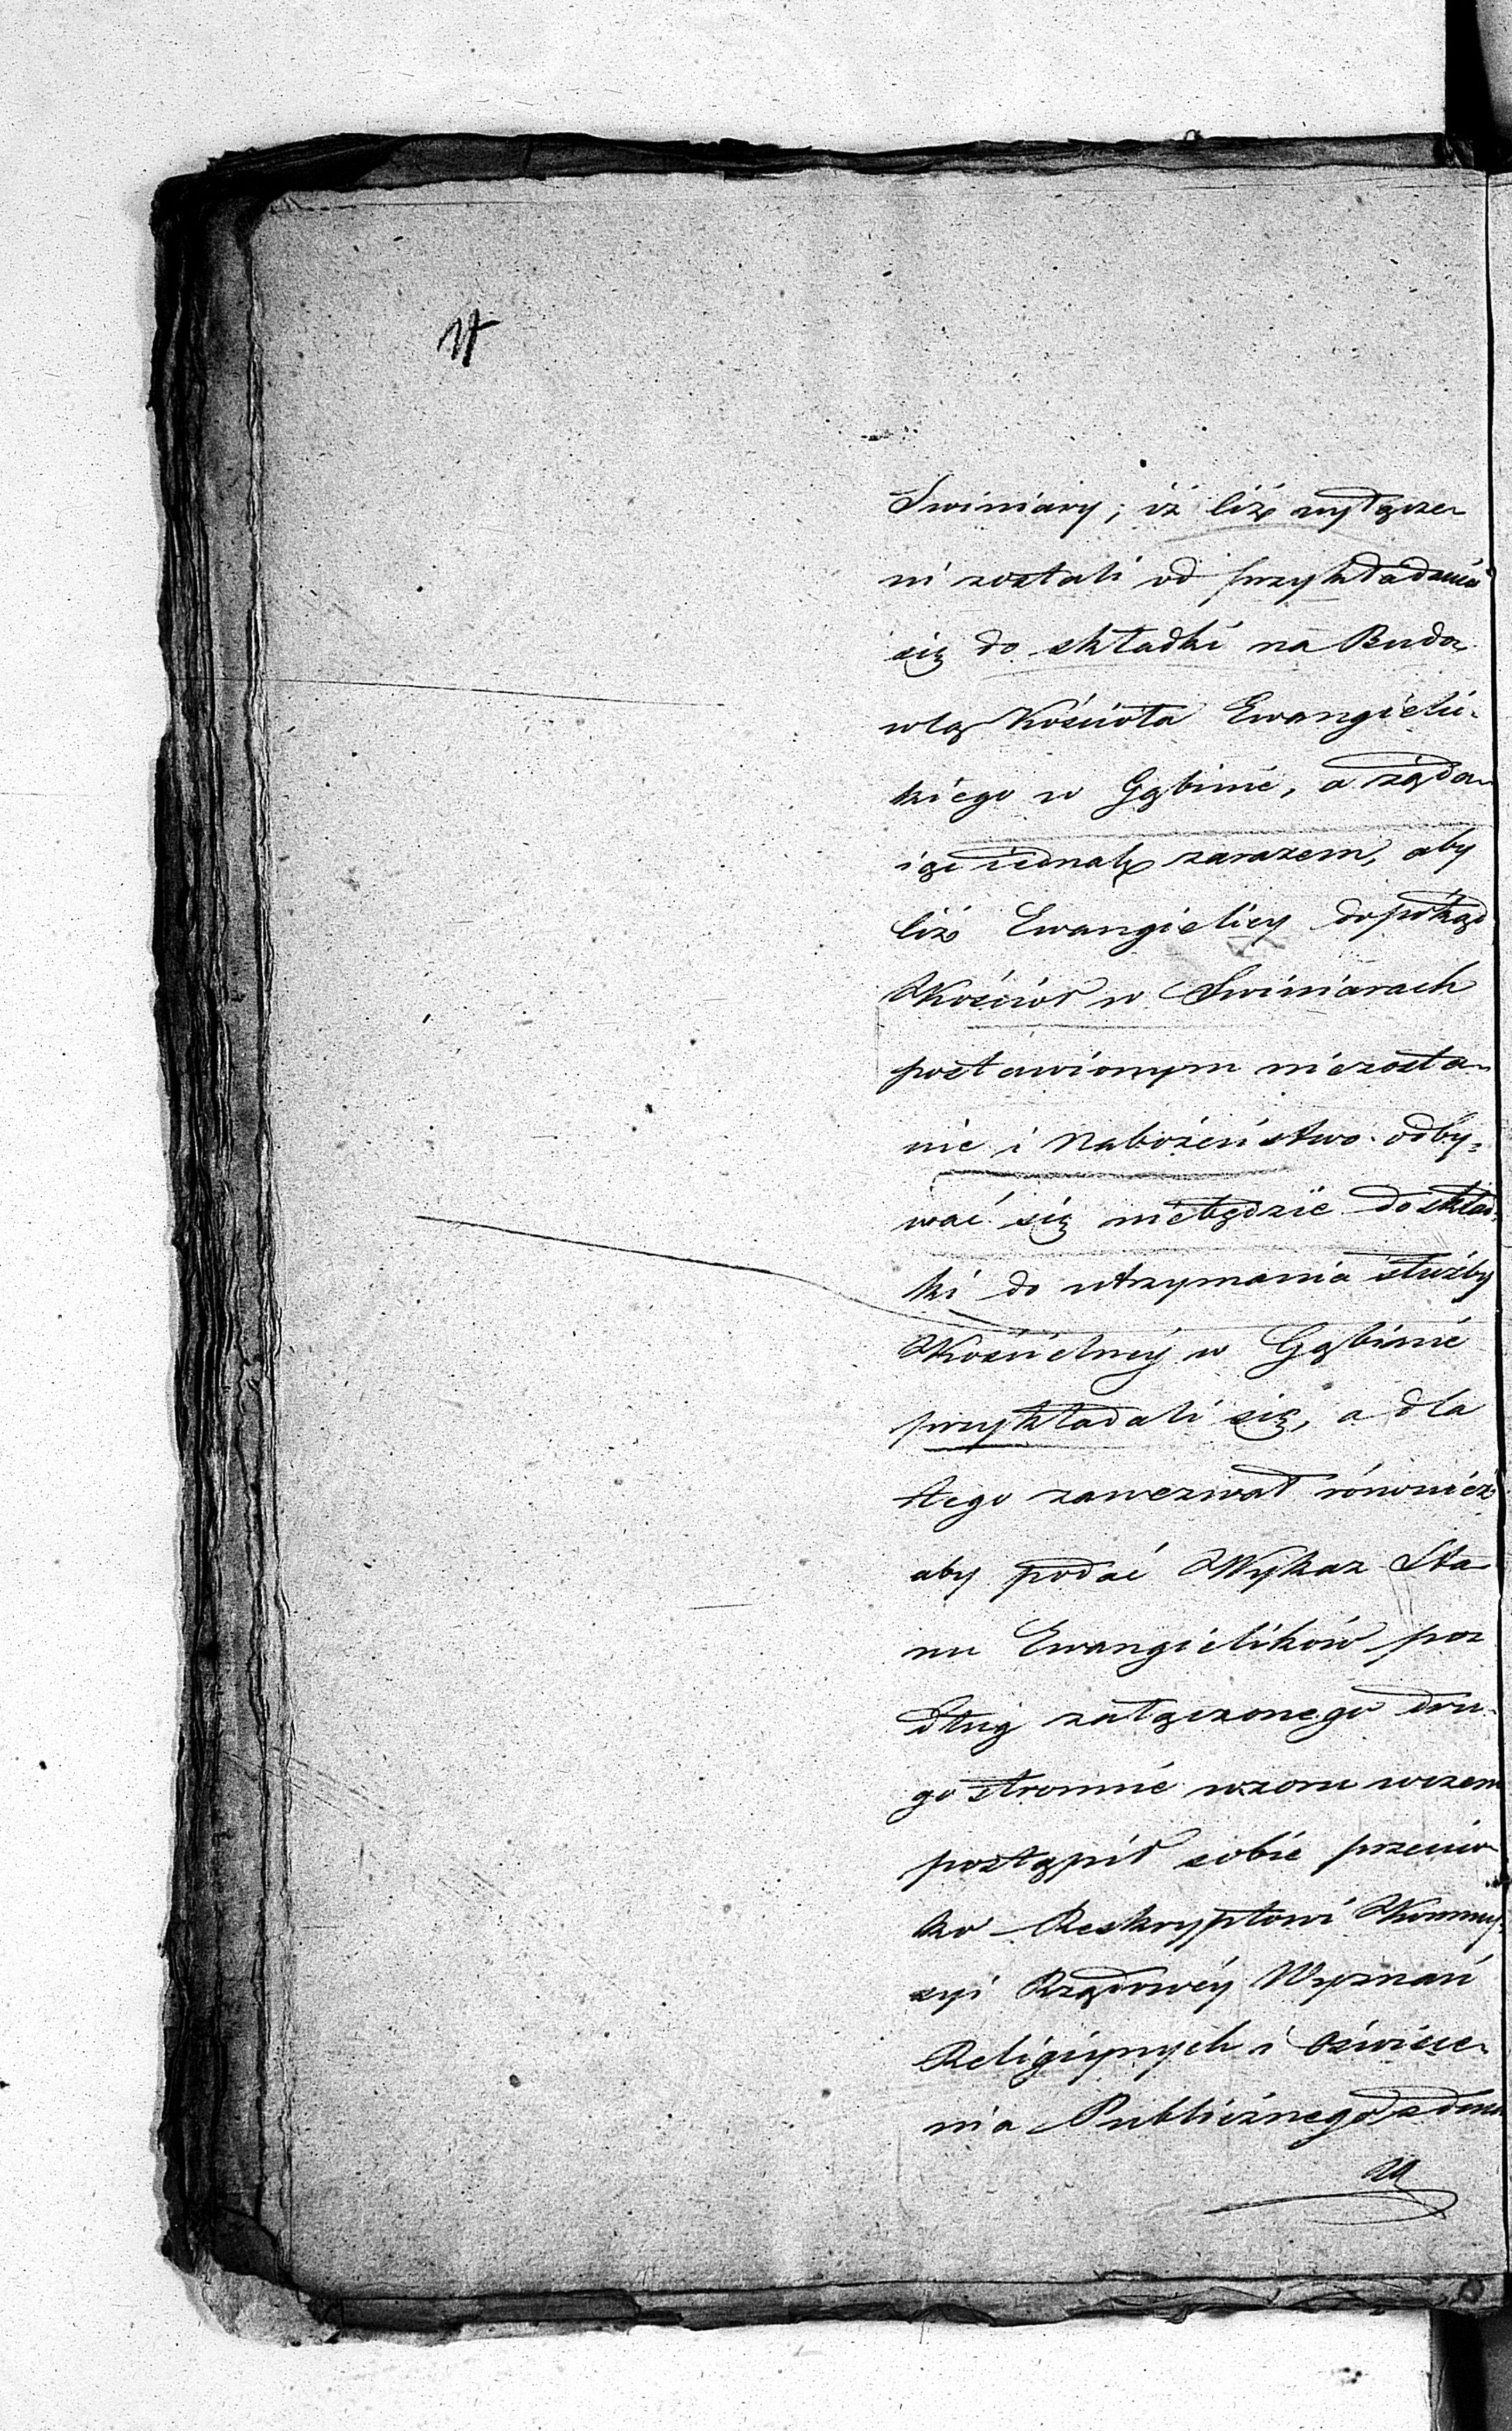 Swiniary, iż ciż wyłącze-
ni zostali od przykładania
się do składki na Budo-
wlę Kościoła Ewangieli-
kiego w Gąbinie, a żąda-
iąc iednak zarazem, aby
ciż Ewangielicy dopókąd
Kościół w Swiniarach
postawionym niezosta-
nie i Nabożeństwo odby-
wać się niebędzie do skład-
ki do utrzymania służby
Kościelnéy w Gąbinie
przykładali się, a dla
tego zawezwał również
aby podać Wykaz Sta-
nu Ewangielików po-
dług załączonego dru-
gostronnie wzoru wszem
postąpił sobie przeciw-
ko Reskryptowi Kommis-
syi Rządowéy Wyznań
Religiynych i Oświece-
nia Publicznego z dnia